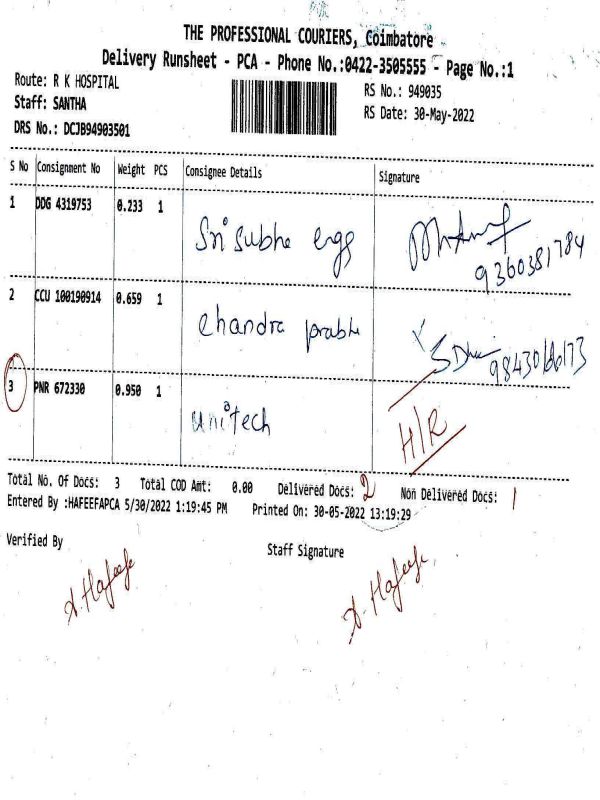 THE PROFESSIONAL COURIERS, Coimbatore
Delivery Runsheet - PCA - Phone No.:0422-3505555 - Page No.:1
Route: R K HOSPITAL
Staff: SANTHA
DRS No.: DCJB94903501
RS No.: 949035
RS Date: 30-May-2022
S No Consignment No Weight PCS Consignee Details Signature
1 DDG 4319753 0.233 1 Sri Subha engg
9360381784
2 CCU 100190914 0.659 1 Chandra prabha
3 PNR 672330 0.950 1 Unitech H/R
Total No. Of Docs: 3 Total COD Amt: 0.00 Delivered Docs: 2 Non Delivered Docs: 1
Entered By :HAFEEFAPCA 5/30/2022 1:19:45 PM Printed On: 30-05-2022 13:19:29
Verified By Staff Signature